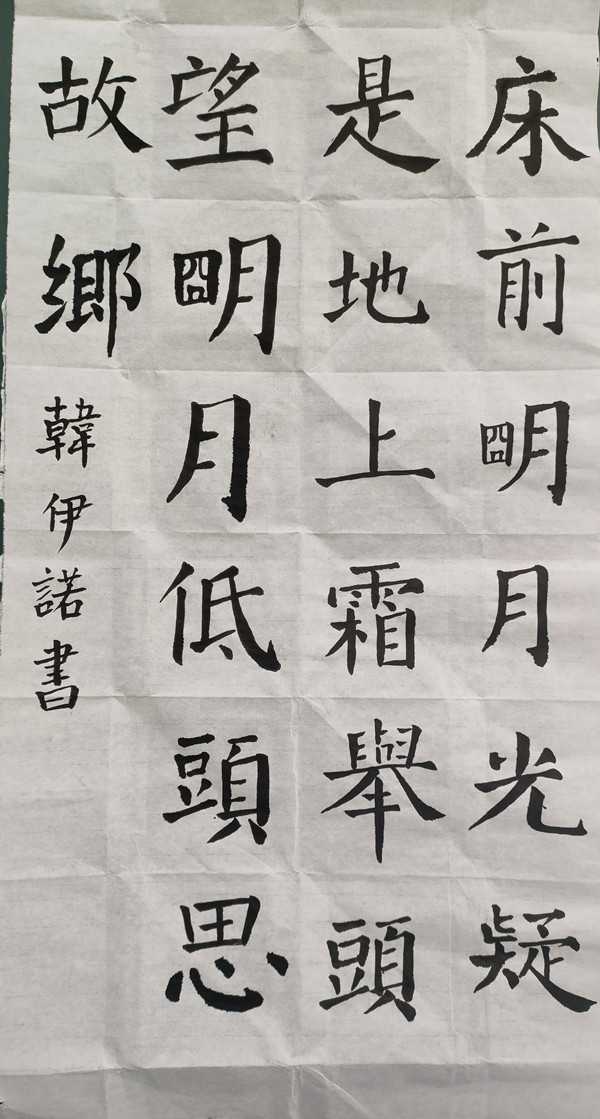 床前明月光疑
是地上霜舉頭
望明月低頭思
故鄉
韓伊諾書